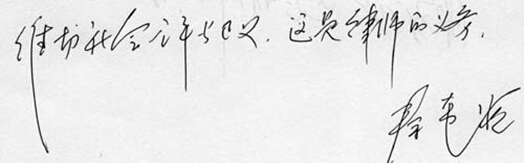 维护社会公平与正义.这是律师的义务.